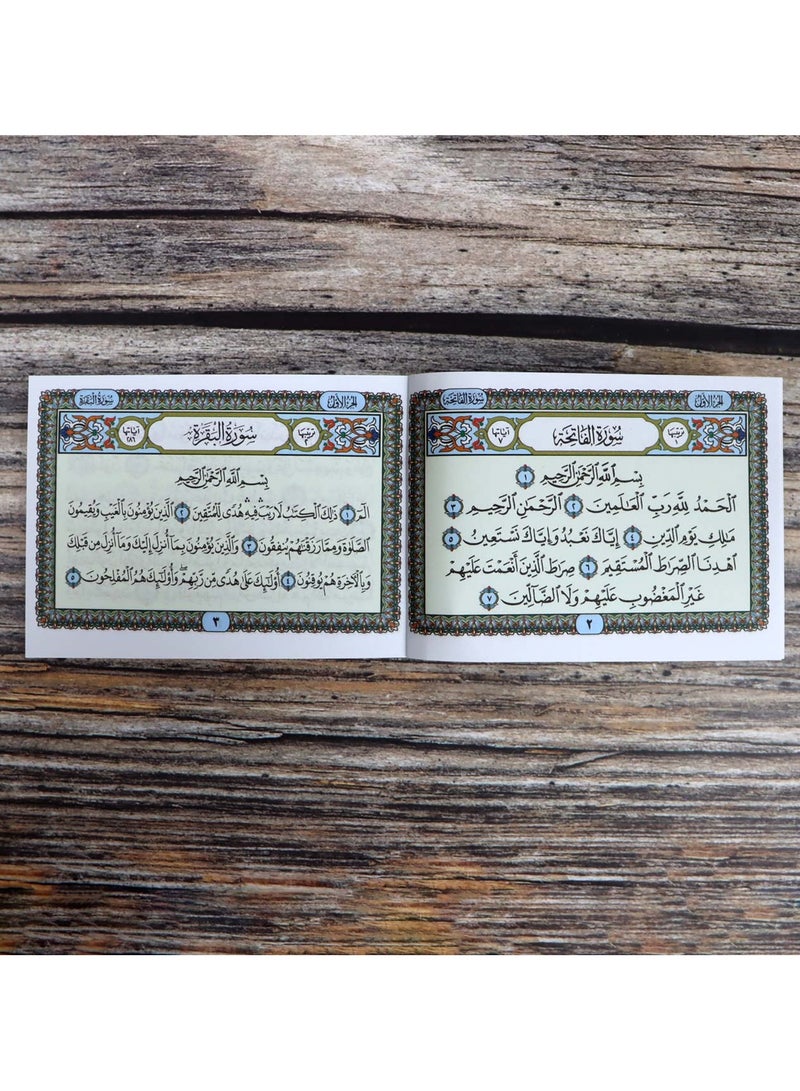 الجزء الأول
سورة الفاتحة
ترتيبها ١
سُورَةُ الفَاتِحَةِ
آياتها ٧
بِسْمِ ٱللَّهِ ٱلرَّحْمَٰنِ ٱلرَّحِيمِ ١
ٱلْحَمْدُ لِلَّهِ رَبِّ ٱلْعَٰلَمِينَ ٢ ٱلرَّحْمَٰنِ ٱلرَّحِيمِ ٣
مَٰلِكِ يَوْمِ ٱلدِّينِ ٤ إِيَّاكَ نَعْبُدُ وَإِيَّاكَ نَسْتَعِينُ ٥
ٱهْدِنَا ٱلصِّرَٰطَ ٱلْمُسْتَقِيمَ ٦ صِرَٰطَ ٱلَّذِينَ أَنْعَمْتَ عَلَيْهِمْ
غَيْرِ ٱلْمَغْضُوبِ عَلَيْهِمْ وَلَا ٱلضَّآلِّينَ ٧
٢
الجزء الأول
سورة البقرة
ترتيبها ٢
سُورَةُ البَقَرَةِ
آياتها ٢٨٦
بِسْمِ ٱللَّهِ ٱلرَّحْمَٰنِ ٱلرَّحِيمِ
الٓمٓ ١ ذَٰلِكَ ٱلْكِتَٰبُ لَا رَيْبَ ۛ فِيهِ ۛ هُدًى لِّلْمُتَّقِينَ ٢ ٱلَّذِينَ يُؤْمِنُونَ بِٱلْغَيْبِ وَيُقِيمُونَ
ٱلصَّلَوٰةَ وَمِمَّا رَزَقْنَٰهُمْ يُنفِقُونَ ٣ وَٱلَّذِينَ يُؤْمِنُونَ بِمَآ أُنزِلَ إِلَيْكَ وَمَآ أُنزِلَ مِن قَبْلِكَ
وَبِٱلْءَاخِرَةِ هُمْ يُوقِنُونَ ٤ أُو۟لَٰٓئِكَ عَلَىٰ هُدًى مِّن رَّبِّهِمْ ۖ وَأُو۟لَٰٓئِكَ هُمُ ٱلْمُفْلِحُونَ ٥
٣